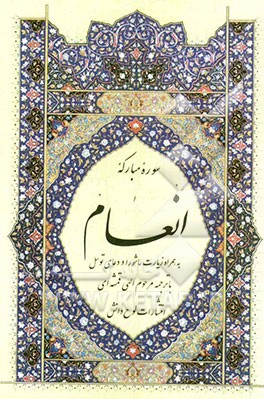 سورهٔ مبارکهٔ
انعام
به همراه زیارت عاشورا و دعای توسل
با ترجمه مرحوم الهی قمشه‌ای
انتشارات لوح دانش